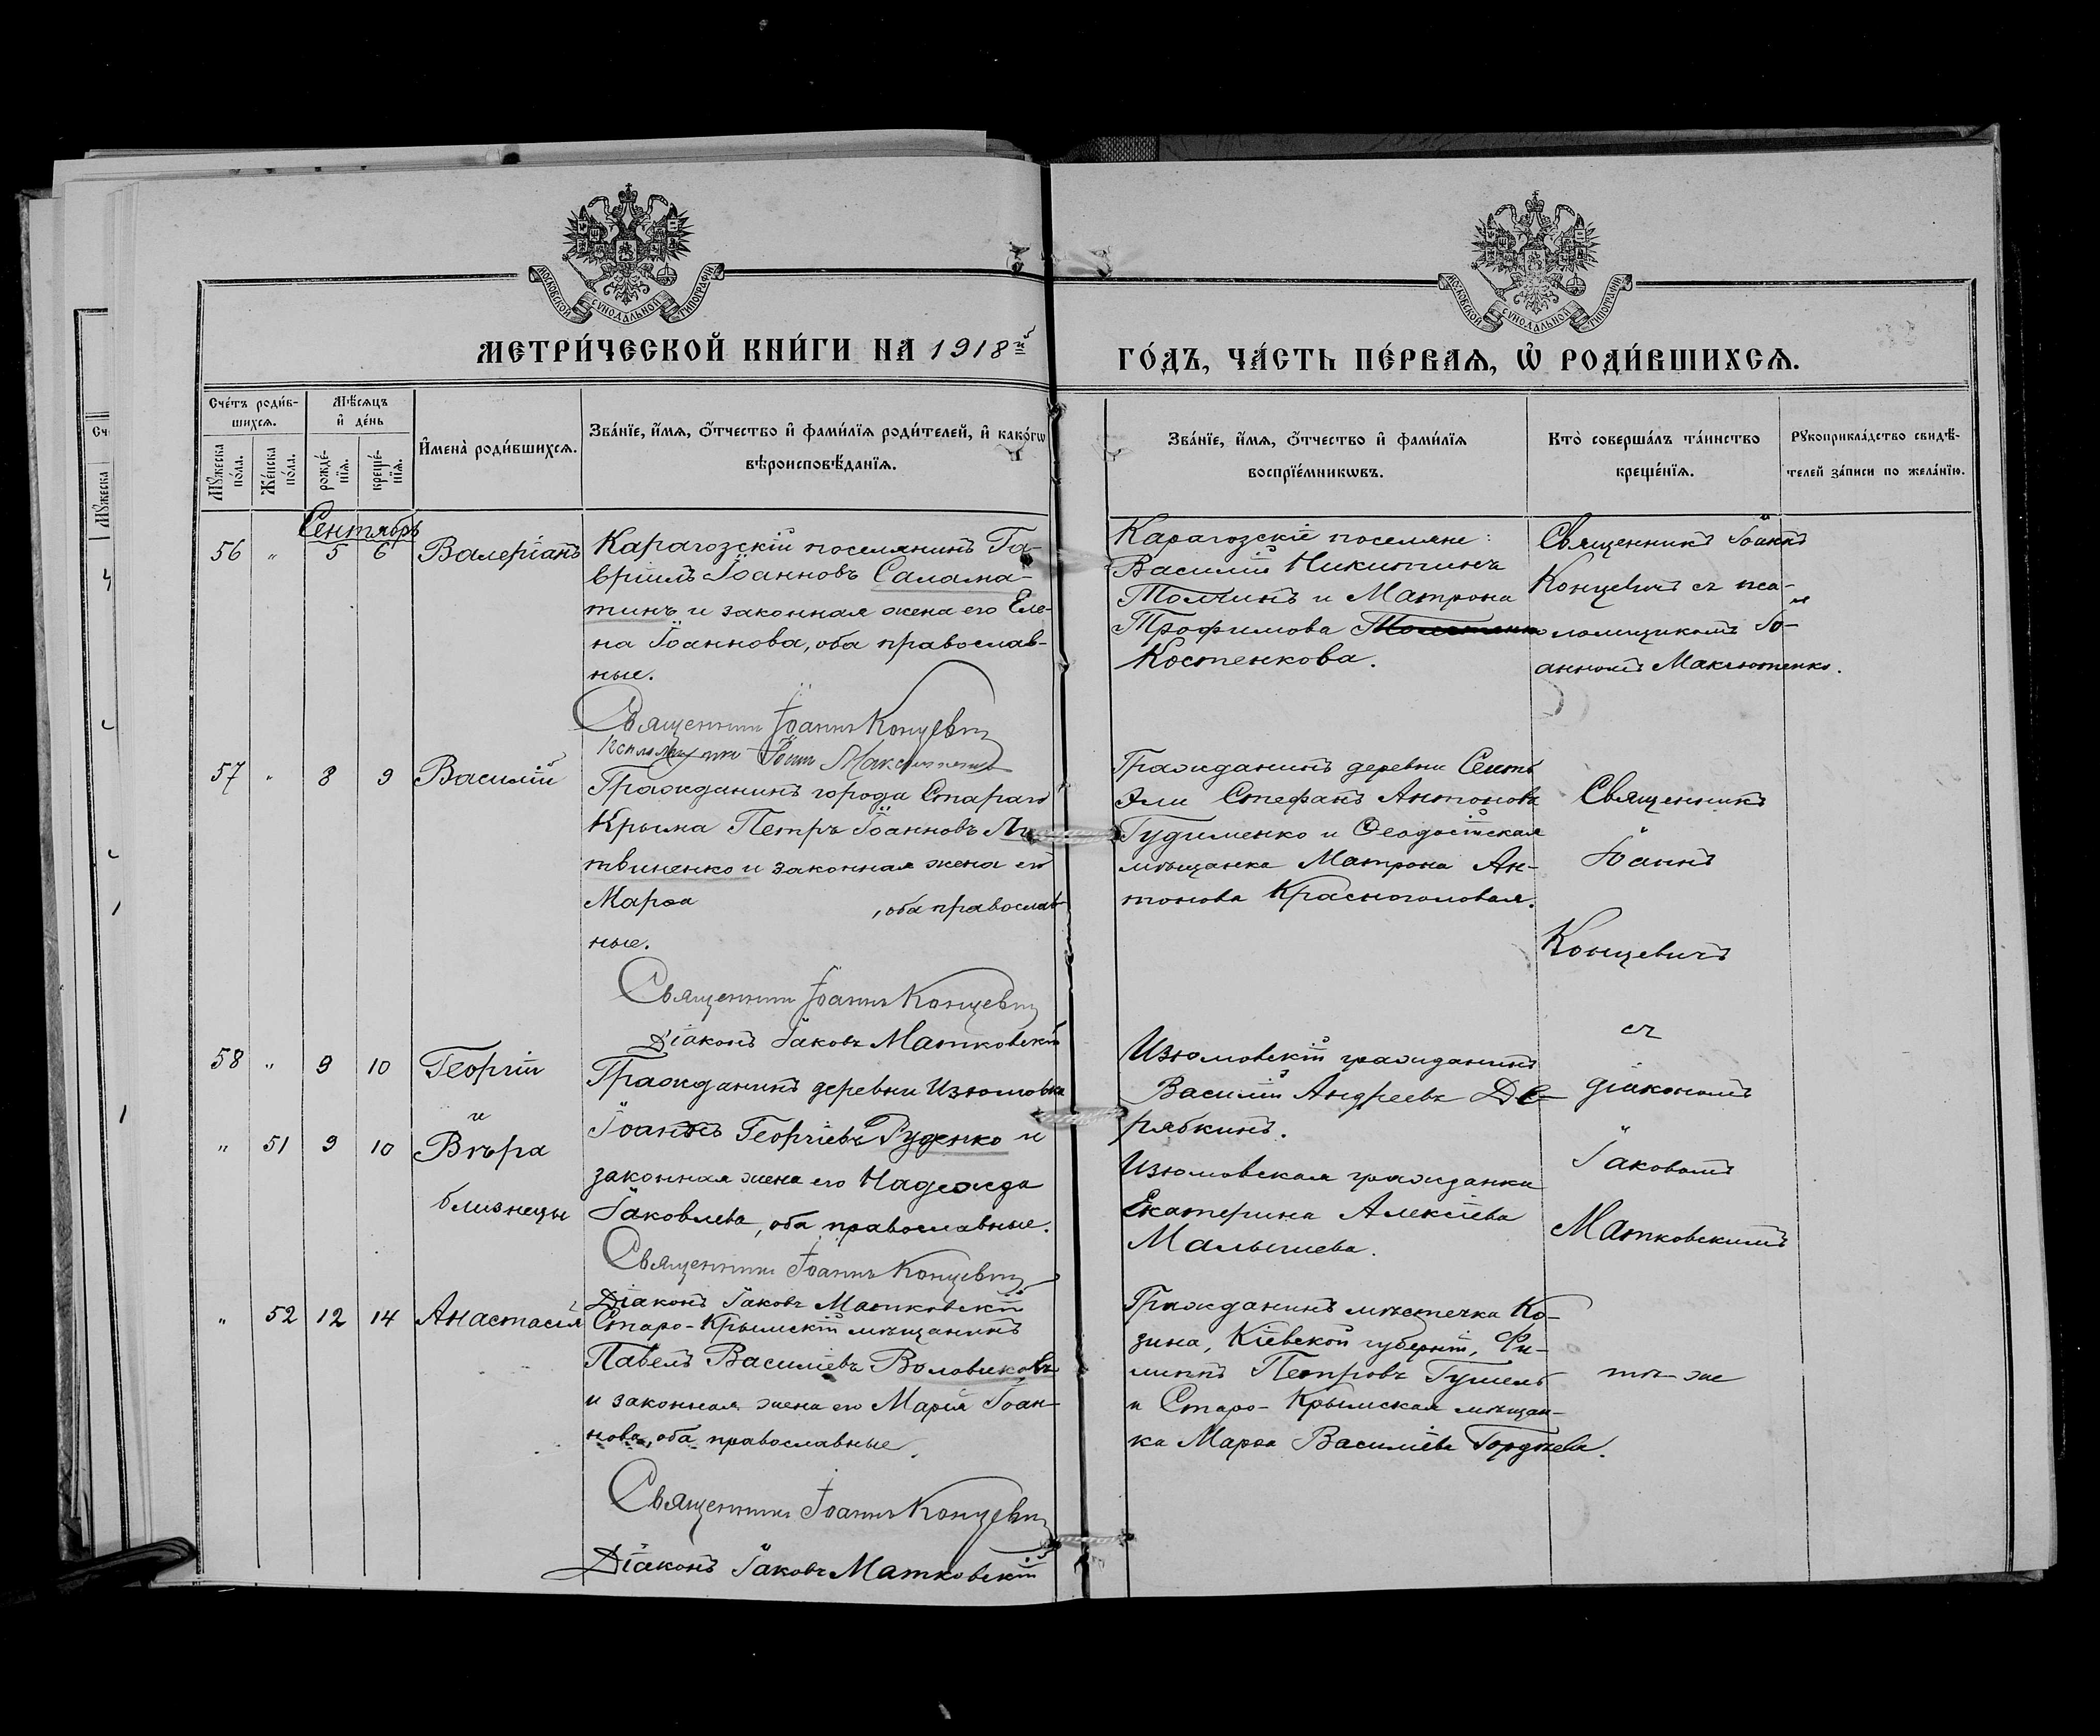 МОСКОВСКОЙ СѴНОДАЛЬНОЙ ТИПОГРАФІИ
МОСКОВСКОЙ СѴНОДАЛЬНОЙ ТИПОГРАФІИ
МЕТРИ́ЧЕСКОЙ КНИ́ГИ НА 1918й
ГО́ДЪ, ЧА́СТЬ ПЕ́РВАѦ, Ѡ҆ РОДИ́ВШИХСѦ.
Сче́тъ роди́в-
шихсѧ.
Мѣ́сѧцъ
и҆ де́нь
Мꙋ́жеска
по́ла.
Же́нска
по́ла.
рожде́-
нїѧ.
креще́-
нїѧ.
И҆мена̀ роди́вшихсѧ.
Зва́нїе, и҆́мѧ, ѻ҆́тчество и҆ фами́лїѧ роди́телей, и҆ како́гѡ
вѣроисповѣ́данїѧ.
Зва́нїе, и҆́мѧ, ѻ҆́тчество и҆ фами́лїѧ
воспрїе́мникѡвъ.
Кто̀ соверша́лъ та́инство
креще́нїѧ.
Рꙋкоприкла́дство свидѣ́-
телей за́писи по жела́нїю.
Сентябрь
56 " 5 6 Валеріанъ
Карагозскій поселянинъ Га-
вріилъ Іоанновъ Салама-
тинъ и законная жена его Еле-
на Іоаннова, оба православ-
ные.
Священникъ Іоаннъ Концевич
Карагозскіе поселяне:
Василій Никитинъ
Толчинъ и Матрона
Трофимова
Костенкова.
Священникъ Іоаннъ
Концевичъ съ пса-
ломщикомъ Іо-
анномъ Максютенко.
57 " 8 9 Василій
Гражданинъ города Стараго
Крыма Петръ Іоанновъ Ли
твиненко и законная жена его
Марѳа , оба православ-
ные.
Священникъ Іоаннъ Концевич
Діаконъ Іаковъ Матковскій
Гражданинъ деревни Сеитъ
Эли Стефанъ Антоновъ
Гудименко и Ѳеодосійская
мѣщанка Матрона Ан-
тонова Красноголовая.
Священникъ
Іоаннъ
Концевичъ
съ
діакономъ
Іаковомъ
Матковскимъ
58 " 9 10 Георгій
и
" 51 9 10 Вѣра
близнецы
Гражданинъ деревни Изюмовка
Іоаннъ Георгіевъ Руденко и
законная жена его Надежда
Іаковлева, оба православные.
Священникъ Іоаннъ Концевич
Діаконъ Іаковъ Матковскій
Изюмовскій гражданинъ
Василій Андреевъ Де-
рябкинъ.
Изюмовская гражданка
Екатерина Алексіева
Малышева.
" 52 12 14 Анастасія
Старо-Крымскій мѣщанинъ
Павелъ Василіевъ Воловиковъ
и законная жена его Марія Іоан-
нова, оба православные.
Священникъ Іоаннъ Концевич
Діаконъ Іаковъ Матковскій
Гражданинъ мѣстечка Ко-
зина, Кіевской губерніи, Фи-
липпъ Петровъ
и Старо-Крымская мѣщан-
ка Марѳа Василіева Гордѣева.
тѣ-же